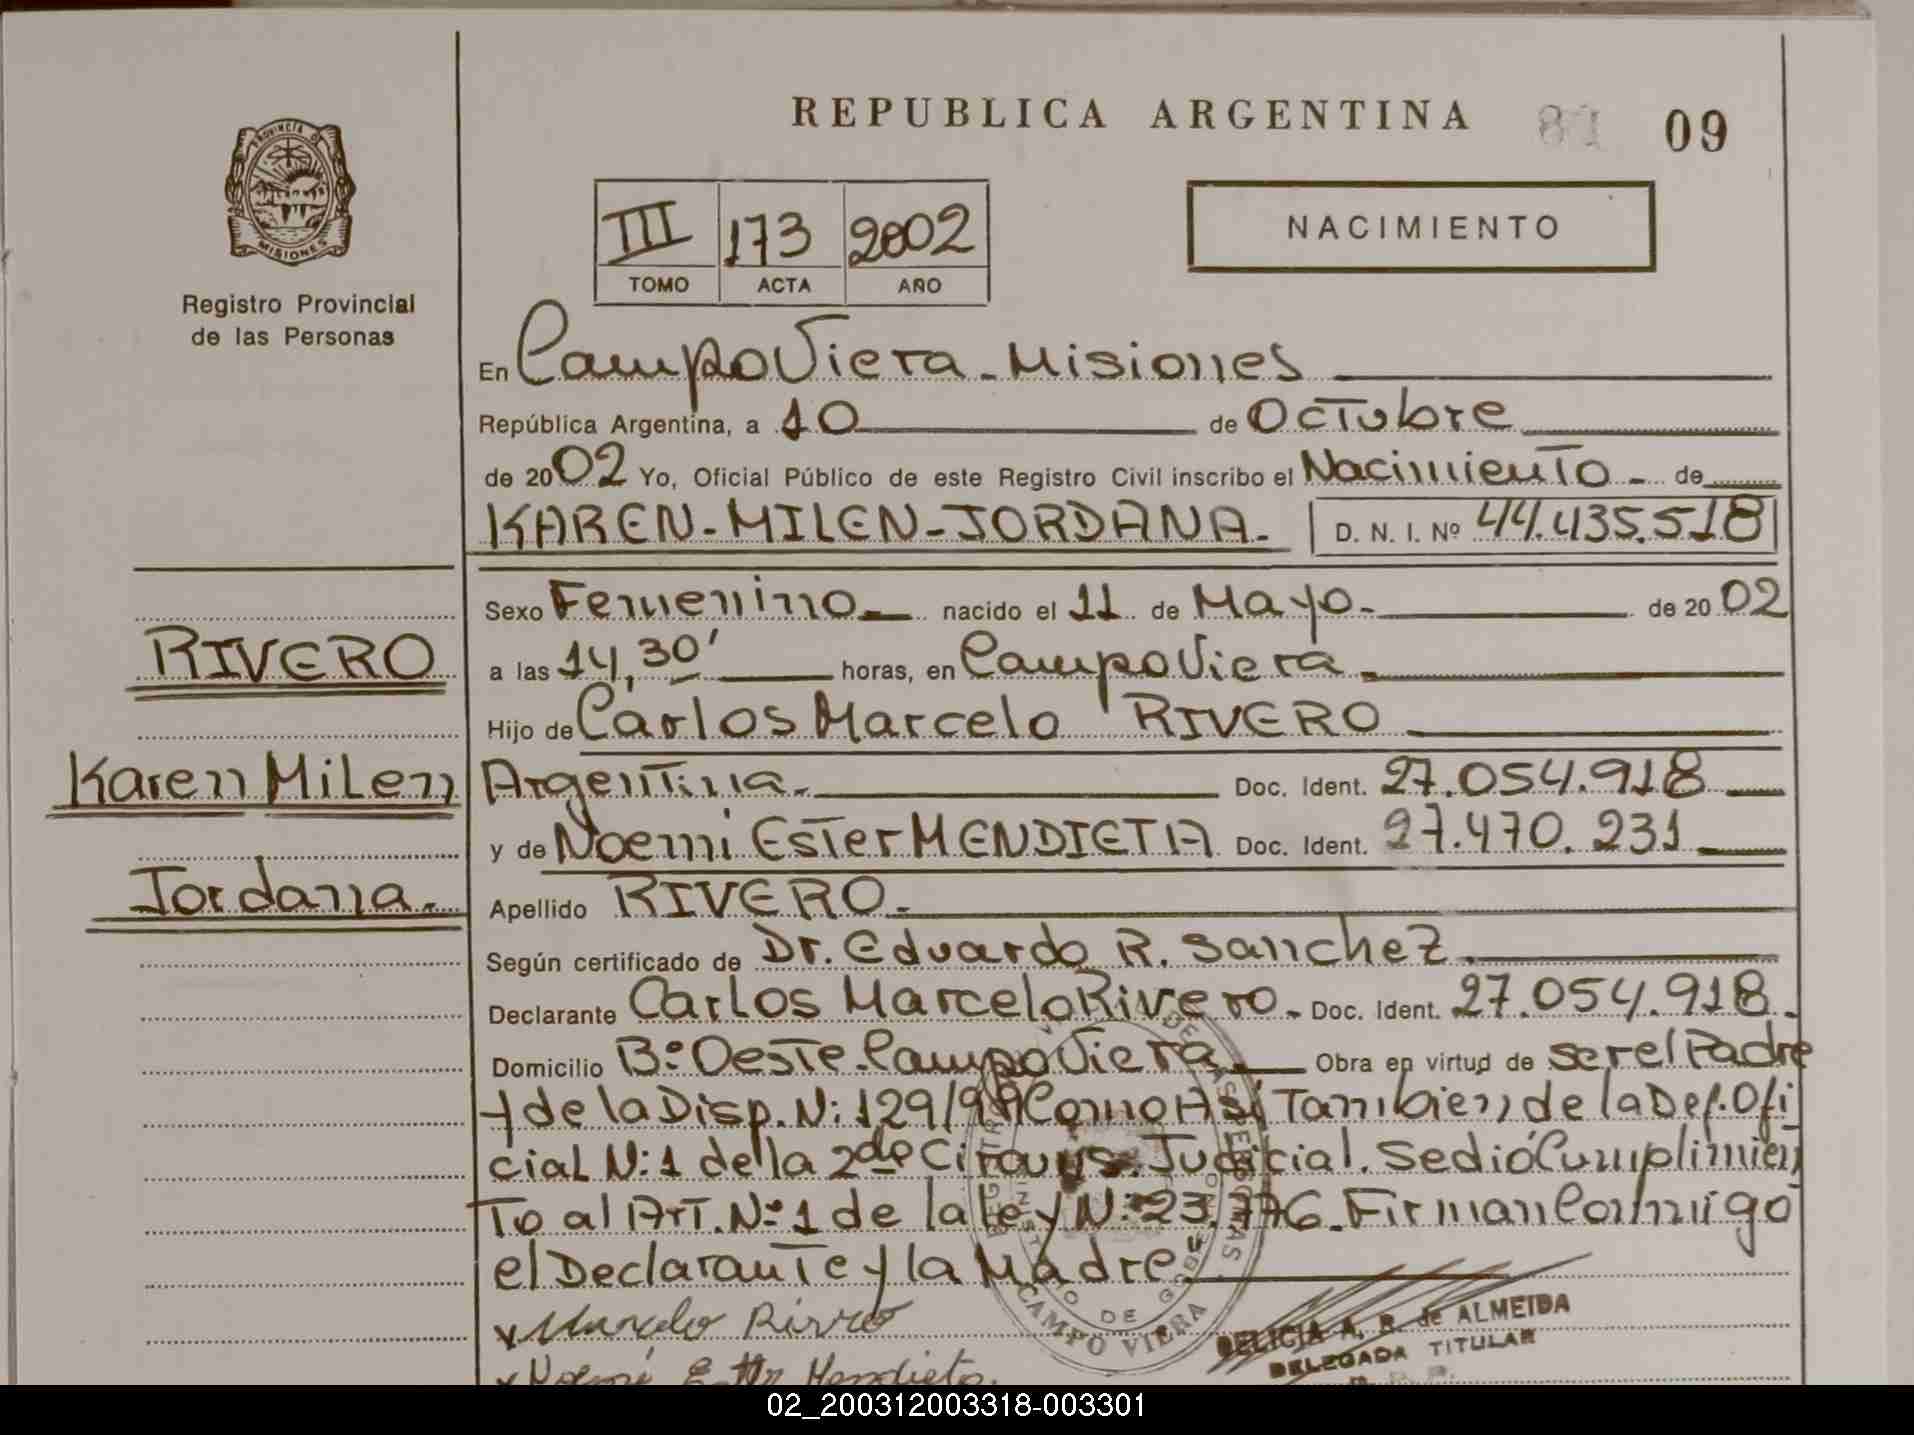 REPUBLICA ARGENTINA
81 09
PROVINCIA DE MISIONES
Registro Provincial
de las Personas
III 173 2002
TOMO ACTA AÑO
NACIMIENTO
En Campo Viera - Misiones
República Argentina, a 10 de Octubre
de 2002 Yo, Oficial Público de este Registro Civil inscribo el Nacimiento - de
KAREN-MILEN-JORDANA. D. N. I. Nº 44.435.518
Sexo Femenino nacido el 11 de Mayo.- de 20 02
RIVERO
a las 14,30' horas, en Campo Viera
Hijo de Carlos Marcelo RIVERO
Karen Milen
Argentina. Doc. Ident. 27.054.918
y de Noemi Ester MENDIETA Doc. Ident. 27.470.231
Jordana.
Apellido RIVERO.
Según certificado de Dr. Eduardo R. Sanchez.
Declarante Carlos Marcelo Rivero. Doc. Ident. 27.054.918.
Domicilio Bº Oeste-Campo Viera Obra en virtud de ser el Padre
y de la Disp. N: 129/99 Como Así Tambien de la Def. Ofi
cial N: 1 de la 2da Circuns. Judicial. Se dió Cumplimien
To al Art. Nº 1 de la ley Nº 23.776. Firman Conmigo
el Declarante y la Madre
x Marcelo Rivero
x Noemi Ester Mendieta.
CAMPO VIERA
DELICIA A. R. de ALMEIDA
DELEGADA TITULAR
02_200312003318-003301